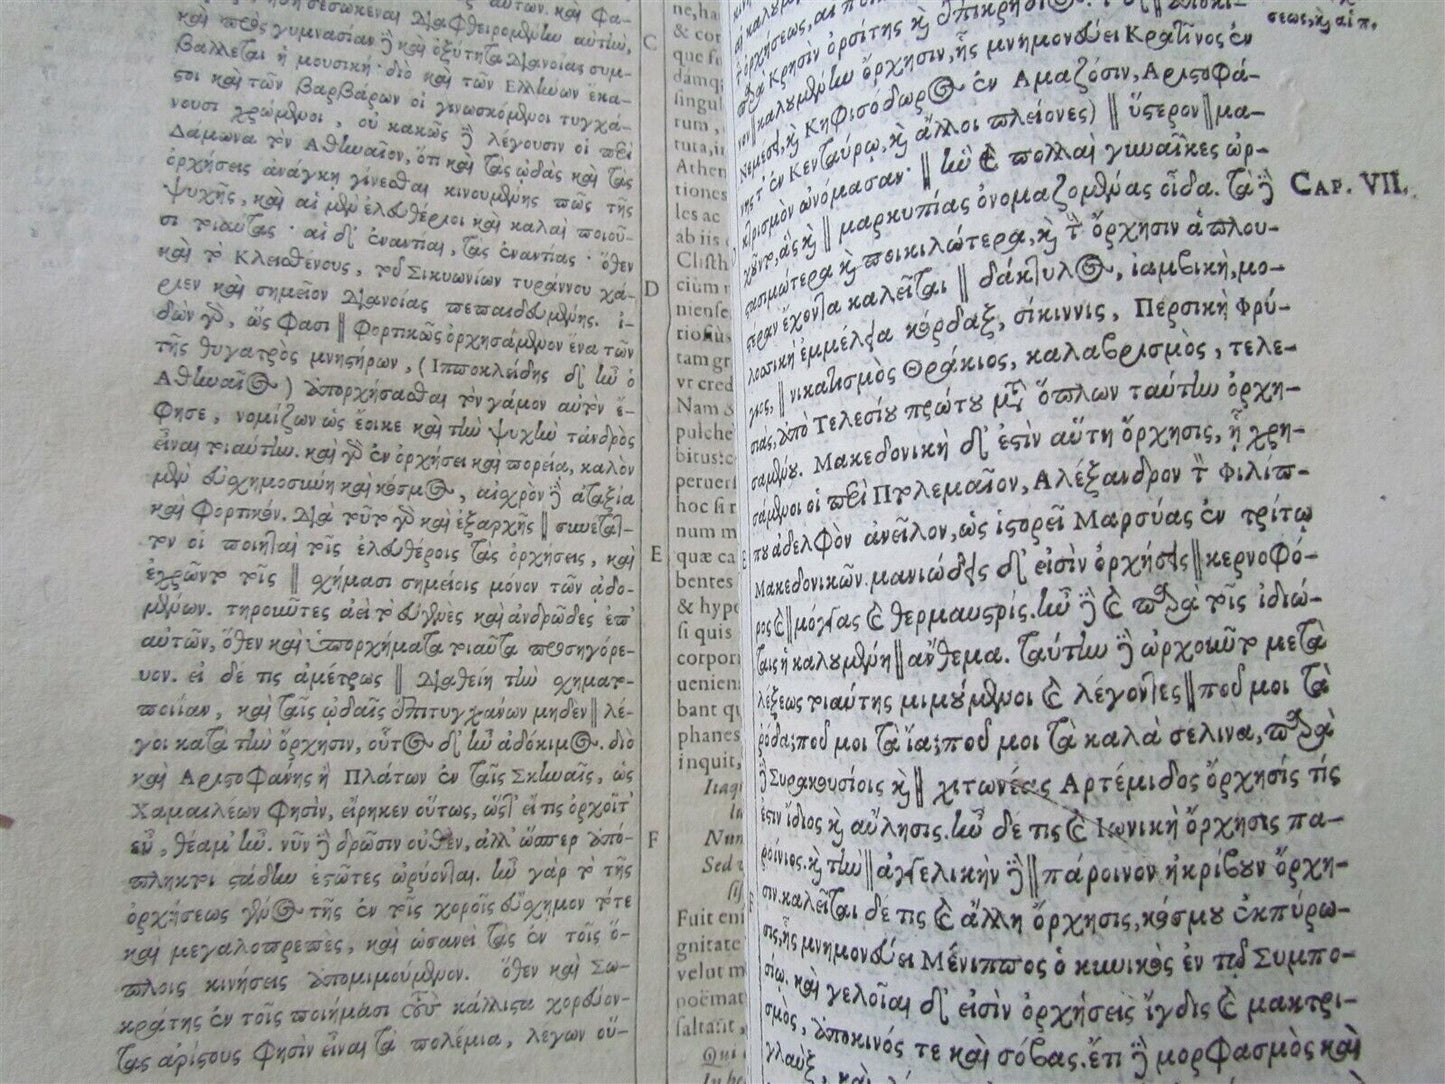 καὶ πρὸς γυμνασίαν δὲ καὶ ὀξύτητα διανοίας συμ-
βάλλεται ἡ μουσική· διὸ καὶ τῶν Ἑλλήνων ἕκα-
στοι καὶ τῶν βαρβάρων οἱ γινωσκόμενοι τυγχά-
νουσι χρώμενοι, οὐ κακῶς δὲ λέγουσιν οἱ περὶ
Δάμωνα τὸν Ἀθηναῖον, ὅτι καὶ τὰς ᾠδὰς καὶ τὰς
ὀρχήσεις ἀνάγκη γίνεσθαι κινουμένης πως τῆς
ψυχῆς, καὶ αἱ μὲν ἐλευθέριοι καὶ καλαὶ ποιοῦ-
σι τοιαύτας· αἱ δ' ἐναντίαι, τὰς ἐναντίας· ὅθεν
καὶ τὸ Κλεισθένους, τοῦ Σικυωνίων τυράννου χά-
ριεν καὶ σημεῖον διανοίας πεπαιδευμένης. ἰ-
δὼν γὰρ, ὥς φασι ‖ φορτικῶς ὀρχησάμενον ἕνα τῶν
τῆς θυγατρὸς μνηστήρων, (Ἱπποκλείδης δ' ἦν ὁ
Ἀθηναῖος) ἀπορχήσασθαι τὸν γάμον αὐτὸν ἔ-
φησε, νομίζων ὡς ἔοικε καὶ τὴν ψυχὴν τἀνδρὸς
εἶναι τοιαύτην. καὶ γὰρ ἐν ὀρχήσει καὶ πορεία, καλὸν
μὲν εὐσχημοσύνη καὶ κόσμος, αἰσχρὸν δὲ ἀταξία
καὶ φορτικόν. διὰ τοῦτο γὰρ καὶ ἐξαρχῆς ‖ συνέταξ-
τον οἱ ποιηταὶ τοῖς ἐλευθέροις τὰς ὀρχήσεις, καὶ
ἐχρῶντο τοῖς ‖ σχήμασι σημείοις μόνον τῶν ᾀδο-
μένων. τηροῦντες ἀεὶ τὸ εὐγενὲς καὶ ἀνδρῶδες ἐπ'
αὐτῶν, ὅθεν καὶ ὑπορχήματα τοιαῦτα προσηγόρε-
υον. εἰ δέ τις ἀμέτρως ‖ διαθείη τὴν σχηματο-
ποιίαν, καὶ ταῖς ᾠδαῖς ἐπιτυγχάνων μηδὲν ‖ λέ-
γοι κατὰ τὴν ὄρχησιν, οὗτος δ' ἦν ἀδόκιμος. διὸ
καὶ Ἀριστοφάνης ἢ Πλάτων ἐν ταῖς Σκευαῖς, ὡς
Χαμαιλέων φησὶν, εἴρηκεν οὕτως, ὥστ' εἴ τις ὀρχοῖτ'
εὖ, θέαμ' ἦν. νῦν δὲ δρῶσιν οὐθὲν, ἀλλ' ὥσπερ ἀπό-
πληκτοι στάδην ἑστῶτες ὠρύονται. ἦν γὰρ τὸ τῆς
ὀρχήσεως γένος τῆς ἐν τοῖς χοροῖς εὔσχημον τότε
καὶ μεγαλοπρεπὲς, καὶ ὡσανεὶ τὰς ἐν τοῖς ὅ-
πλοις κινήσεις ἀπομιμούμενον. ὅθεν καὶ Σω-
κράτης ἐν τοῖς ποιήμασι τοὺς κάλλιστα χορεύον-
τας ἀρίστους φησὶν εἶναι τὰ πολέμια, λέγων οὕ-
C
D
E
F
& cor
que fu
damq
singul
rum,
Athen
tiones
les ac
ab iis
Clisth
cium
niense
tam gr
vt cred
Nam
pulche
peruer
hoc si
num m
quæ ca
bentes
& hype
si quis
corpor
uenien
bant qu
phanes
inquit,
Itaq
Nun
Sed
Fuit eni
gnitate
velut m
poëmat
saltarit,
Qui
In be
σεως, καὶ αἱ π.
CAP. VII.
καλυμένην ὄρχησιν, ἧς μνημονεύει Κρατῖνος ἐν
Νεμέσει, καὶ Κηφισόδωρος ἐν Ἀμαζόσιν, Ἀριστοφά-
νης τ' ἐν Κενταύρῳ, καὶ ἄλλοι πλείονες) ‖ ὕστερον ‖ μα-
κτρισμὸν ὠνόμασαν· ‖ ἣν καὶ πολλαὶ γυναῖκες ὠρ-
χοῦντο, ἃς καὶ ‖ μαρκυπίας ὀνομαζομένας οἶδα. τὰ δὲ
στασιμώτερα καὶ ποικιλώτερα, καὶ τὴν ὄρχησιν ἁπλου-
στέραν ἔχοντα καλεῖται ‖ δάκτυλος, ἰαμβικὴ, μο-
λοσσικὴ ἐμμέλεια κόρδαξ, σίκιννις, Περσικὴ Φρύ-
γιος, ‖ νικατισμὸς Θράκιος, καλαβρισμὸς, τελε-
σιάς, ἀπὸ Τελεσίου πρώτου μετὰ ὅπλων ταύτην ὀρχη-
σαμένου. Μακεδονικὴ δ' ἐστὶν αὕτη ὄρχησις, ᾗ χρη-
σάμενοι οἱ περὶ Πτολεμαῖον, Ἀλέξανδρον τὸν Φιλίπ-
που ἀδελφὸν ἀνεῖλον, ὡς ἱστορεῖ Μαρσύας ἐν τρίτῳ
Μακεδονικῶν. μανιώδεις δ' εἰσὶν ὀρχήσεις ‖ κερνοφό-
ρος καὶ ‖ μόγγας καὶ θερμαυστρίς. ἦν δὲ καὶ παρὰ τοῖς ἰδιώ-
ταις ἡ καλουμένη ‖ ἄνθεμα. ταύτην δὲ ὠρχοῦντο μετὰ
λέξεως τοιαύτης μιμούμενοι καὶ λέγοντες ‖ ποῦ μοι τὰ
ῥόδα; ποῦ μοι τὰ ἴα; ποῦ μοι τὰ καλὰ σέλινα, παρὰ
δὲ Συρακουσίοις καὶ ‖ χιτωνέας Ἀρτέμιδος ὄρχησίς τίς
ἐστιν ἴδιος καὶ αὔλησις. ἦν δέ τις καὶ Ἰωνικὴ ὄρχησις πα-
ροίνιος. καὶ τὴν ‖ ἀγγελικὴν δὲ ‖ πάροινον ἠκρίβουν ὄρχη-
σιν. καλεῖται δέ τις καὶ ἄλλη ὄρχησις, κόσμου ἐκπύρω-
σις, ἧς μνημονεύει Μένιππος ὁ κυνικὸς ἐν τῷ Συμπο-
σίῳ. καὶ γελοῖαι δ' εἰσὶν ὀρχήσεις ἴγδις καὶ μακτρι-
σμὸς, ἀπόκινός τε καὶ σόβας. ἔτι δὲ μορφασμὸς καὶ
γλαὺξ, καὶ